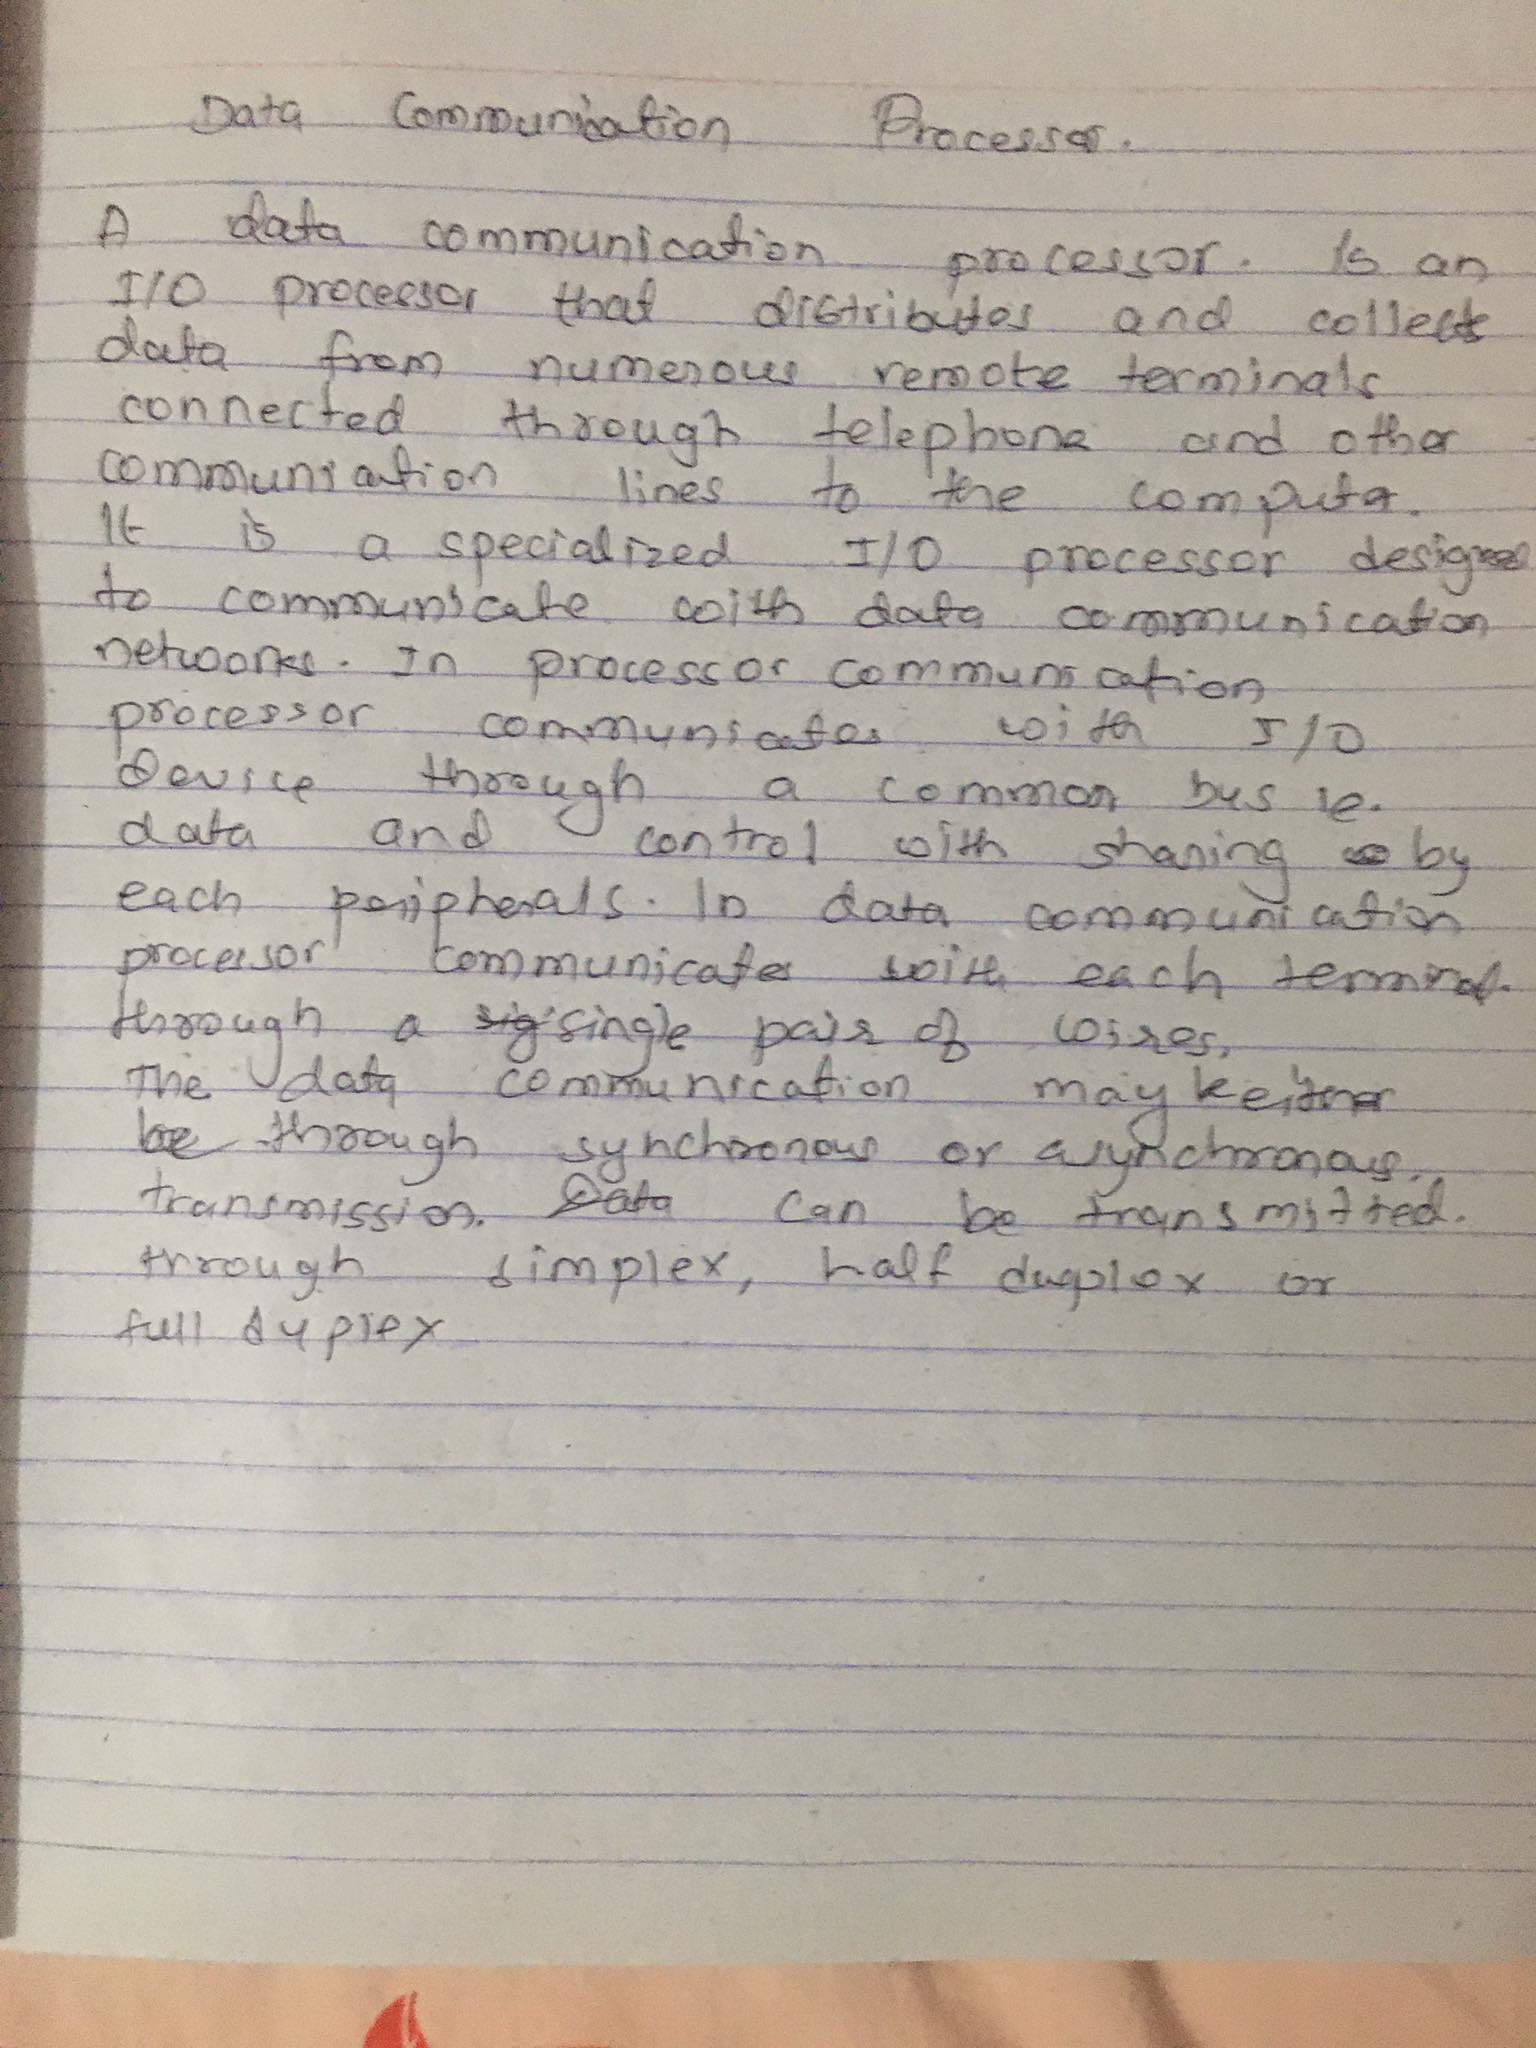 Data Communication Processor.
A data communication processor. is an
I/O processor that distributes and collects
data from numerous remote terminals
connected through telephone and other
communication lines to the computer.
It is a specialized I/O processor designed
to communicate with data communication
networks. In processor communication
processor communicates with I/O
device through a common bus ie.
data and control with sharing by
each peripherals. In data communication
processor communicates with each terminal.
through a single pair of wires.
The data communication may either
be through synchronous or asynchronous.
transmission. Data can be transmitted.
through simplex, half duplex or
full duplex